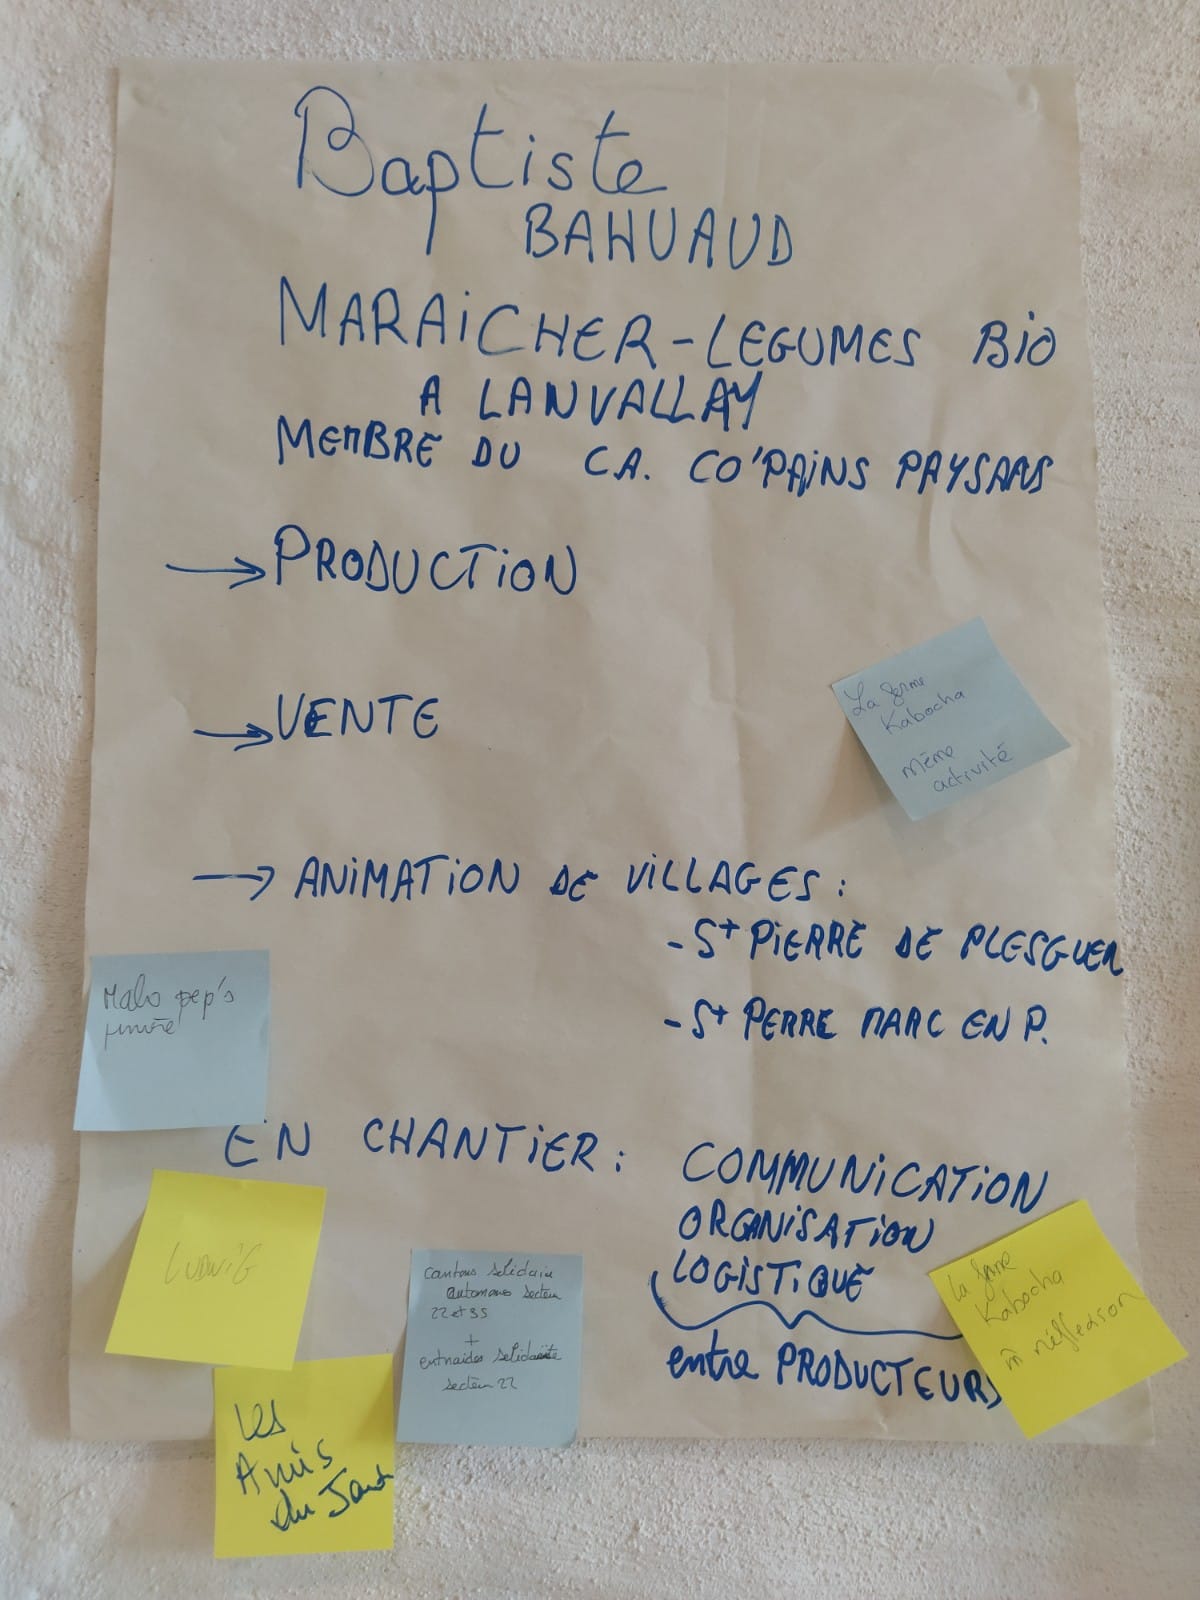 Baptiste
BAHUAUD
MARAICHER-LEGUMES BIO
A LANVALLAY
MEMBRE DU C.A. CO'PAINS PAYSANS
→ PRODUCTION
→ VENTE
La ferme
Kabocha
même
activité
→ ANIMATION DE VILLAGES :
- St PIERRE DE PLESGUER
- St PERRE MARC EN P.
Malo pep's
EN CHANTIER : COMMUNICATION
ORGANISATION
LOGISTIQUE
entre PRODUCTEURS
LUDWIG
cantons solidair
autonomes secteur
22 et 35
+
entraides solidarité
secteur 22
La ferme
Kabocha
m réflexion
Les
Amis
du